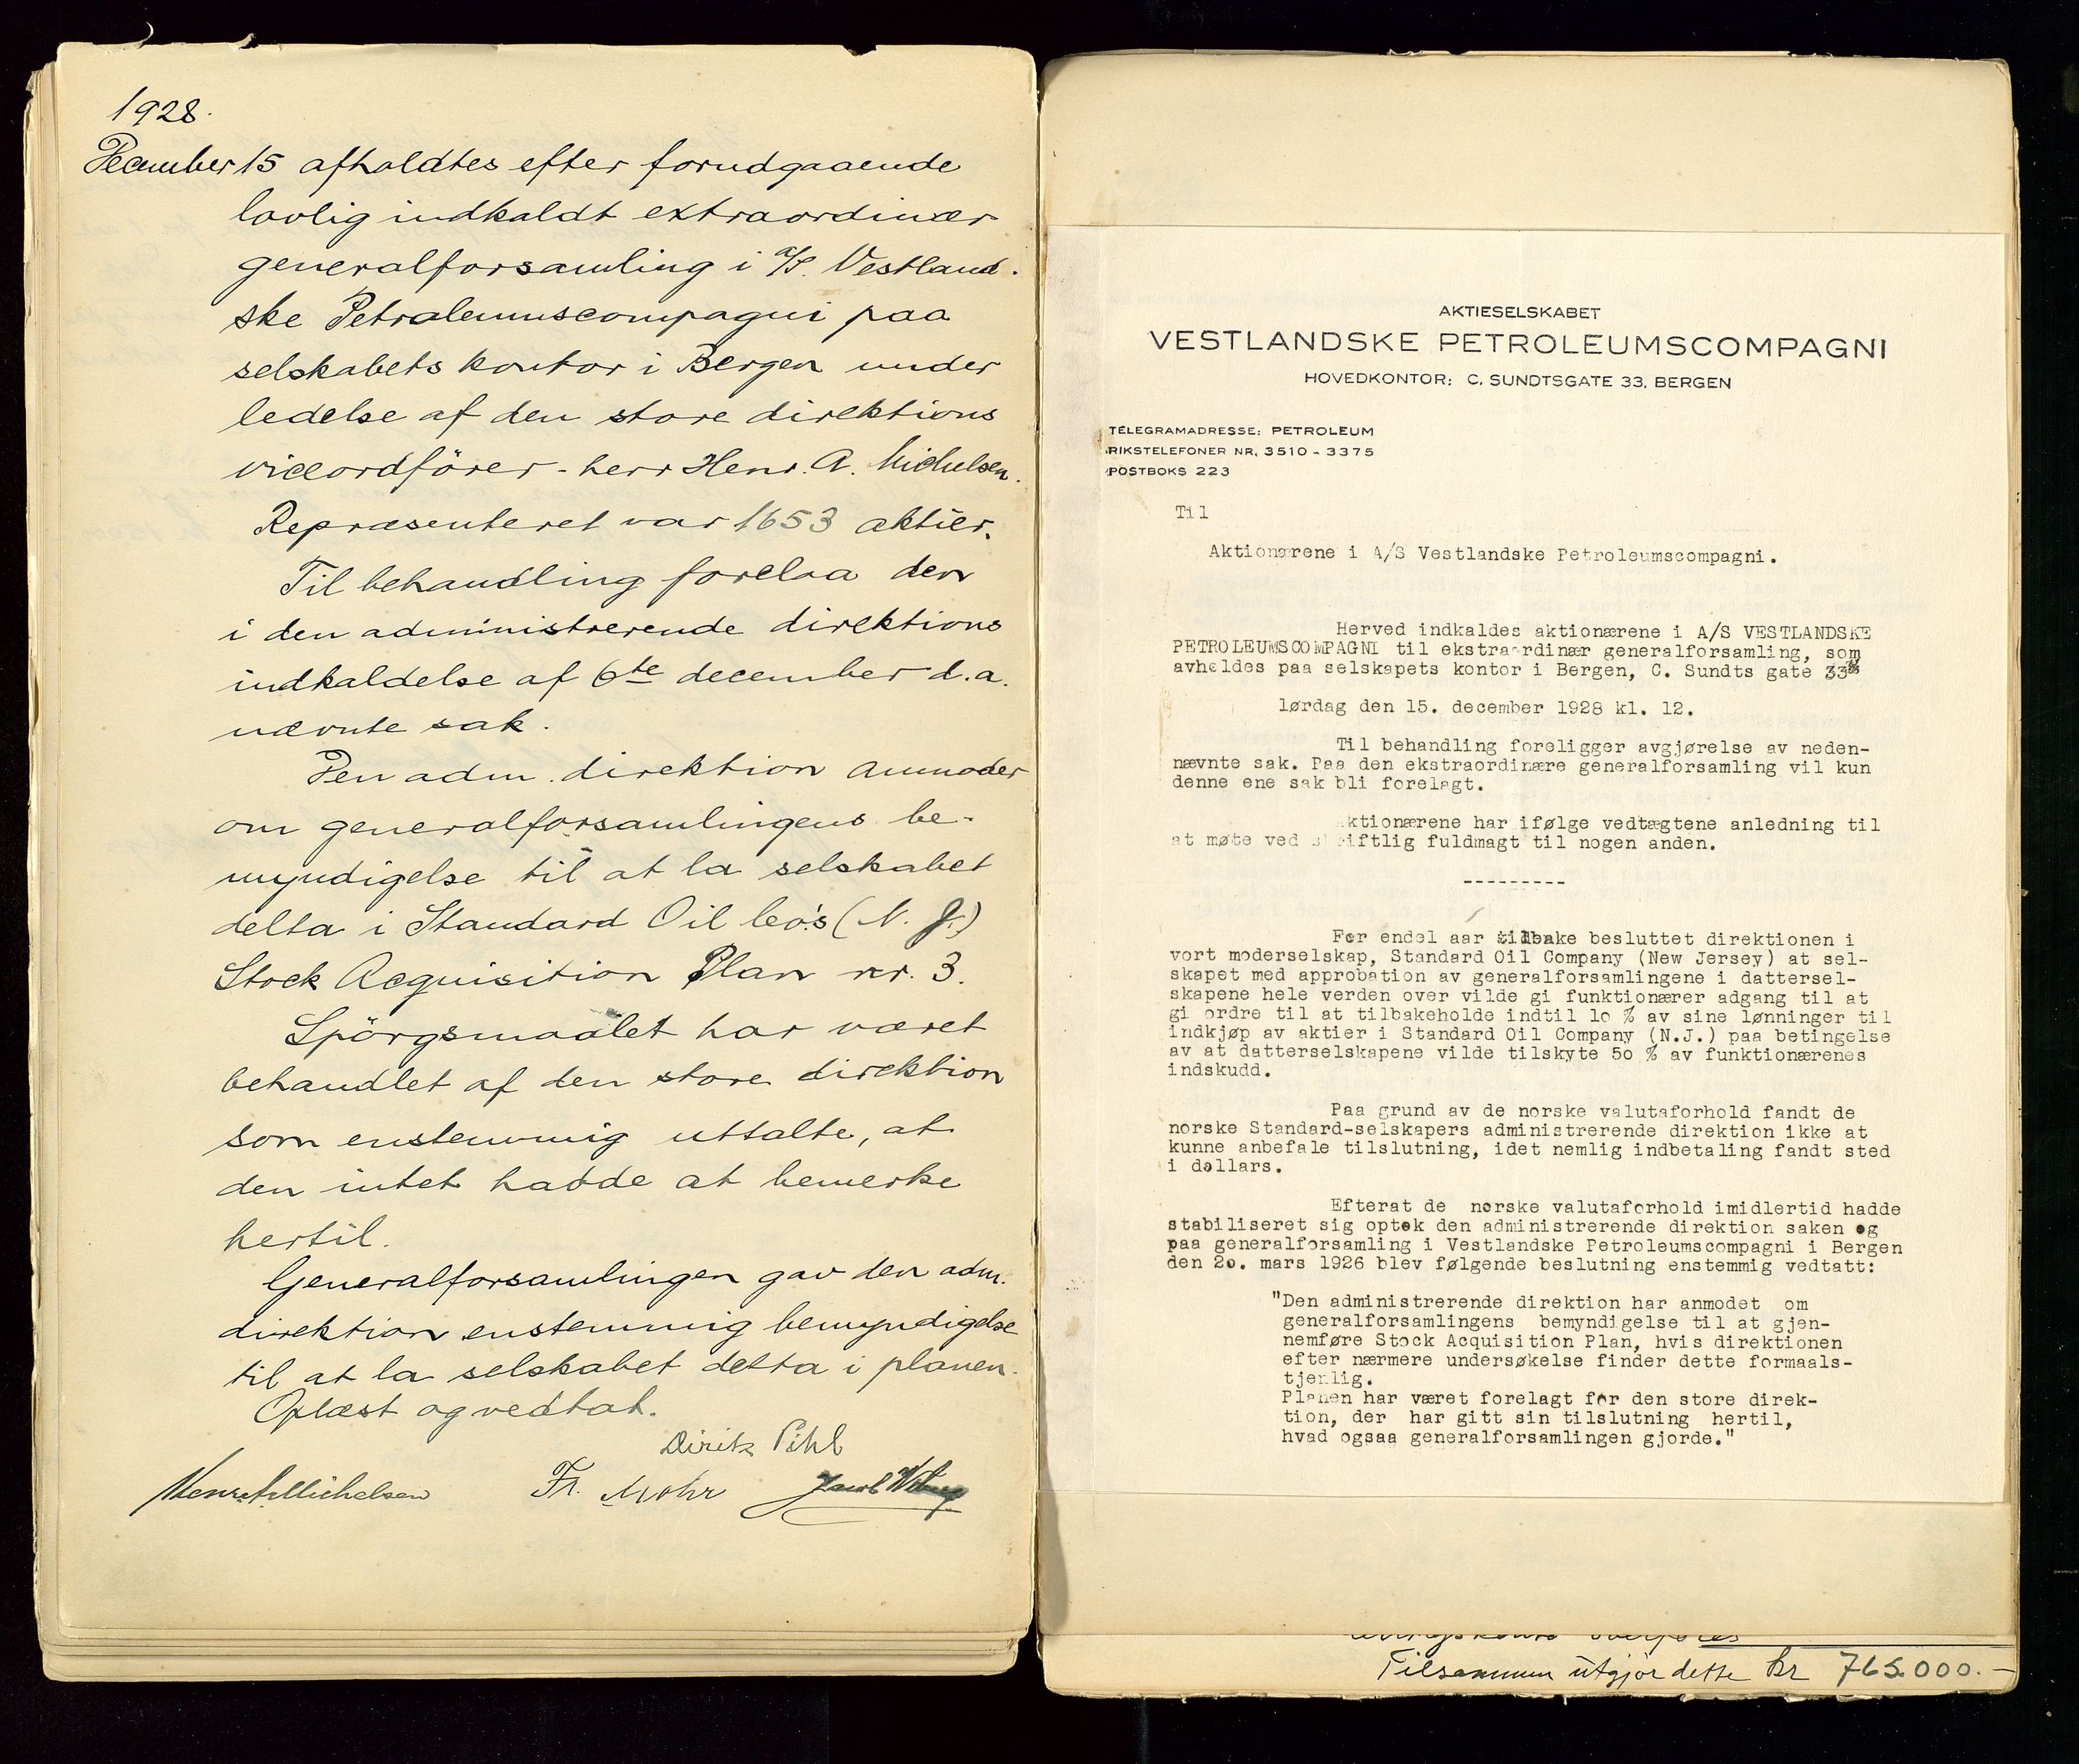 1928.
December 15 afholdtes efter forudgaaende
lovlig indkaldt extraordinær
generalforsamling i A/S. Vestland-
ske Petroleumscompagni paa
selskabets kontor i Bergen under
ledelse af den store direktions
viceordförer - herr Henr. A. Michelsen.
Repræsenteret var 1653 aktier.
Til behandling forelaa den
i den administrerende direktions
indkaldelse af 6te december d.a.
nævnte sak.
Den adm. direktion anmoder
om generalforsamlingens be-
myndigelse til at la selskabet
delta i Standard Oil Co.'s (N. J.)
Stock Acquisition Plan nr. 3.
Spörgsmaalet har været
behandlet af den store direktion
som enstemmig uttalte, at
den intet hadde at bemerke
hertil.
Generalforsamlingen gav den adm.
direktion enstemmig bemyndigelse
til at la selskabet delta i planen.
Oplæst og vedtat.
Didrik Pihl
Henr. A. Michelsen Fr. Mohr
AKTIESELSKABET
VESTLANDSKE PETROLEUMSCOMPAGNI
HOVEDKONTOR: C. SUNDTSGATE 33, BERGEN
TELEGRAMADRESSE: PETROLEUM
RIKSTELEFONER NR. 3510 - 3375
POSTBOKS 223
Til
Aktionærene i A/S Vestlandske Petroleumscompagni.
Herved indkaldes aktionærene i A/S VESTLANDSKE
PETROLEUMSCOMPAGNI til ekstraordinær generalforsamling, som
avholdes paa selskapets kontor i Bergen, C. Sundts gate 33
lørdag den 15. december 1928 kl. 12.
Til behandling foreligger avgjørelse av neden-
nævnte sak. Paa den ekstraordinære generalforsamling vil kun
denne ene sak bli forelagt.
Aktionærene har ifølge vedtægtene anledning til
at møte ved skriftlig fuldmagt til nogen anden.
---------
For endel aar tilbake besluttet direktionen i
vort moderselskap, Standard Oil Company (New Jersey) at sel-
skapet med approbation av generalforsamlingene i dattersel-
skapene hele verden over vilde gi funktionærer adgang til at
gi ordre til at tilbakeholde indtil 10 % av sine lønninger til
indkjøp av aktier i Standard Oil Company (N.J.) paa betingelse
av at datterselskapene vilde tilskyte 50 % av funktionærenes
indskudd.
Paa grund av de norske valutaforhold fandt de
norske Standard-selskapers administrerende direktion ikke at
kunne anbefale tilslutning, idet nemlig indbetaling fandt sted
i dollars.
Efterat de norske valutaforhold imidlertid hadde
stabiliseret sig optok den administrerende direktion saken og
paa generalforsamling i Vestlandske Petroleumscompagni i Bergen
den 20. mars 1926 blev følgende beslutning enstemmig vedtatt:
"Den administrerende direktion har anmodet om
generalforsamlingens bemyndigelse til at gjen-
nemføre Stock Acquisition Plan, hvis direktionen
efter nærmere undersøkelse finder dette formaals-
tjenlig.
Planen har været forelagt for den store direk-
tion, der har gitt sin tilslutning hertil,
hvad ogsaa generalforsamlingen gjorde."
Tilsammen utgjör dette kr 765.000.-